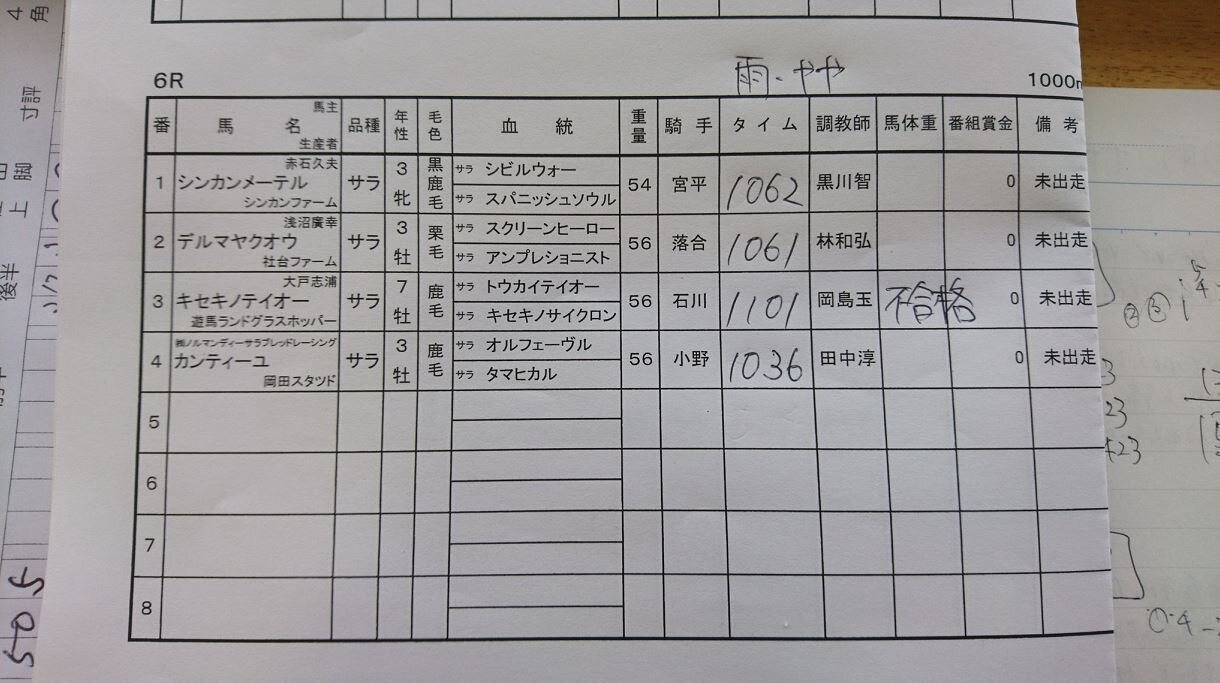 4角
寸評
後半
上
脚
505
6R 雨・やや 1000m
番 馬名 馬主 生産者 品種 年性 毛色 血統 重量 騎手 タイム 調教師 馬体重 番組賞金 備考
赤石久夫
1 シンカンメーテル サラ 3 牝 黒鹿毛 サラ シビルウォー 54 宮平 1062 黒川智 0 未出走
シンカンファーム サラ スパニッシュソウル
浅沼廣幸
2 デルマヤクオウ サラ 3 牡 栗毛 サラ スクリーンヒーロー 56 落合 1061 林和弘 0 未出走
社台ファーム サラ アンプレショニスト
大戸志浦
3 キセキノテイオー サラ 7 牡 鹿毛 サラ トウカイテイオー 56 石川 1101 岡島玉 不合格 0 未出走
遊馬ランドグラスホッパー サラ キセキノサイクロン
㈱ノルマンディーサラブレッドレーシング
4 カンティーユ サラ 3 牡 鹿毛 サラ オルフェーヴル 56 小野 1036 田中淳 0 未出走
岡田スタツド サラ タマヒカル
5
6
7
8